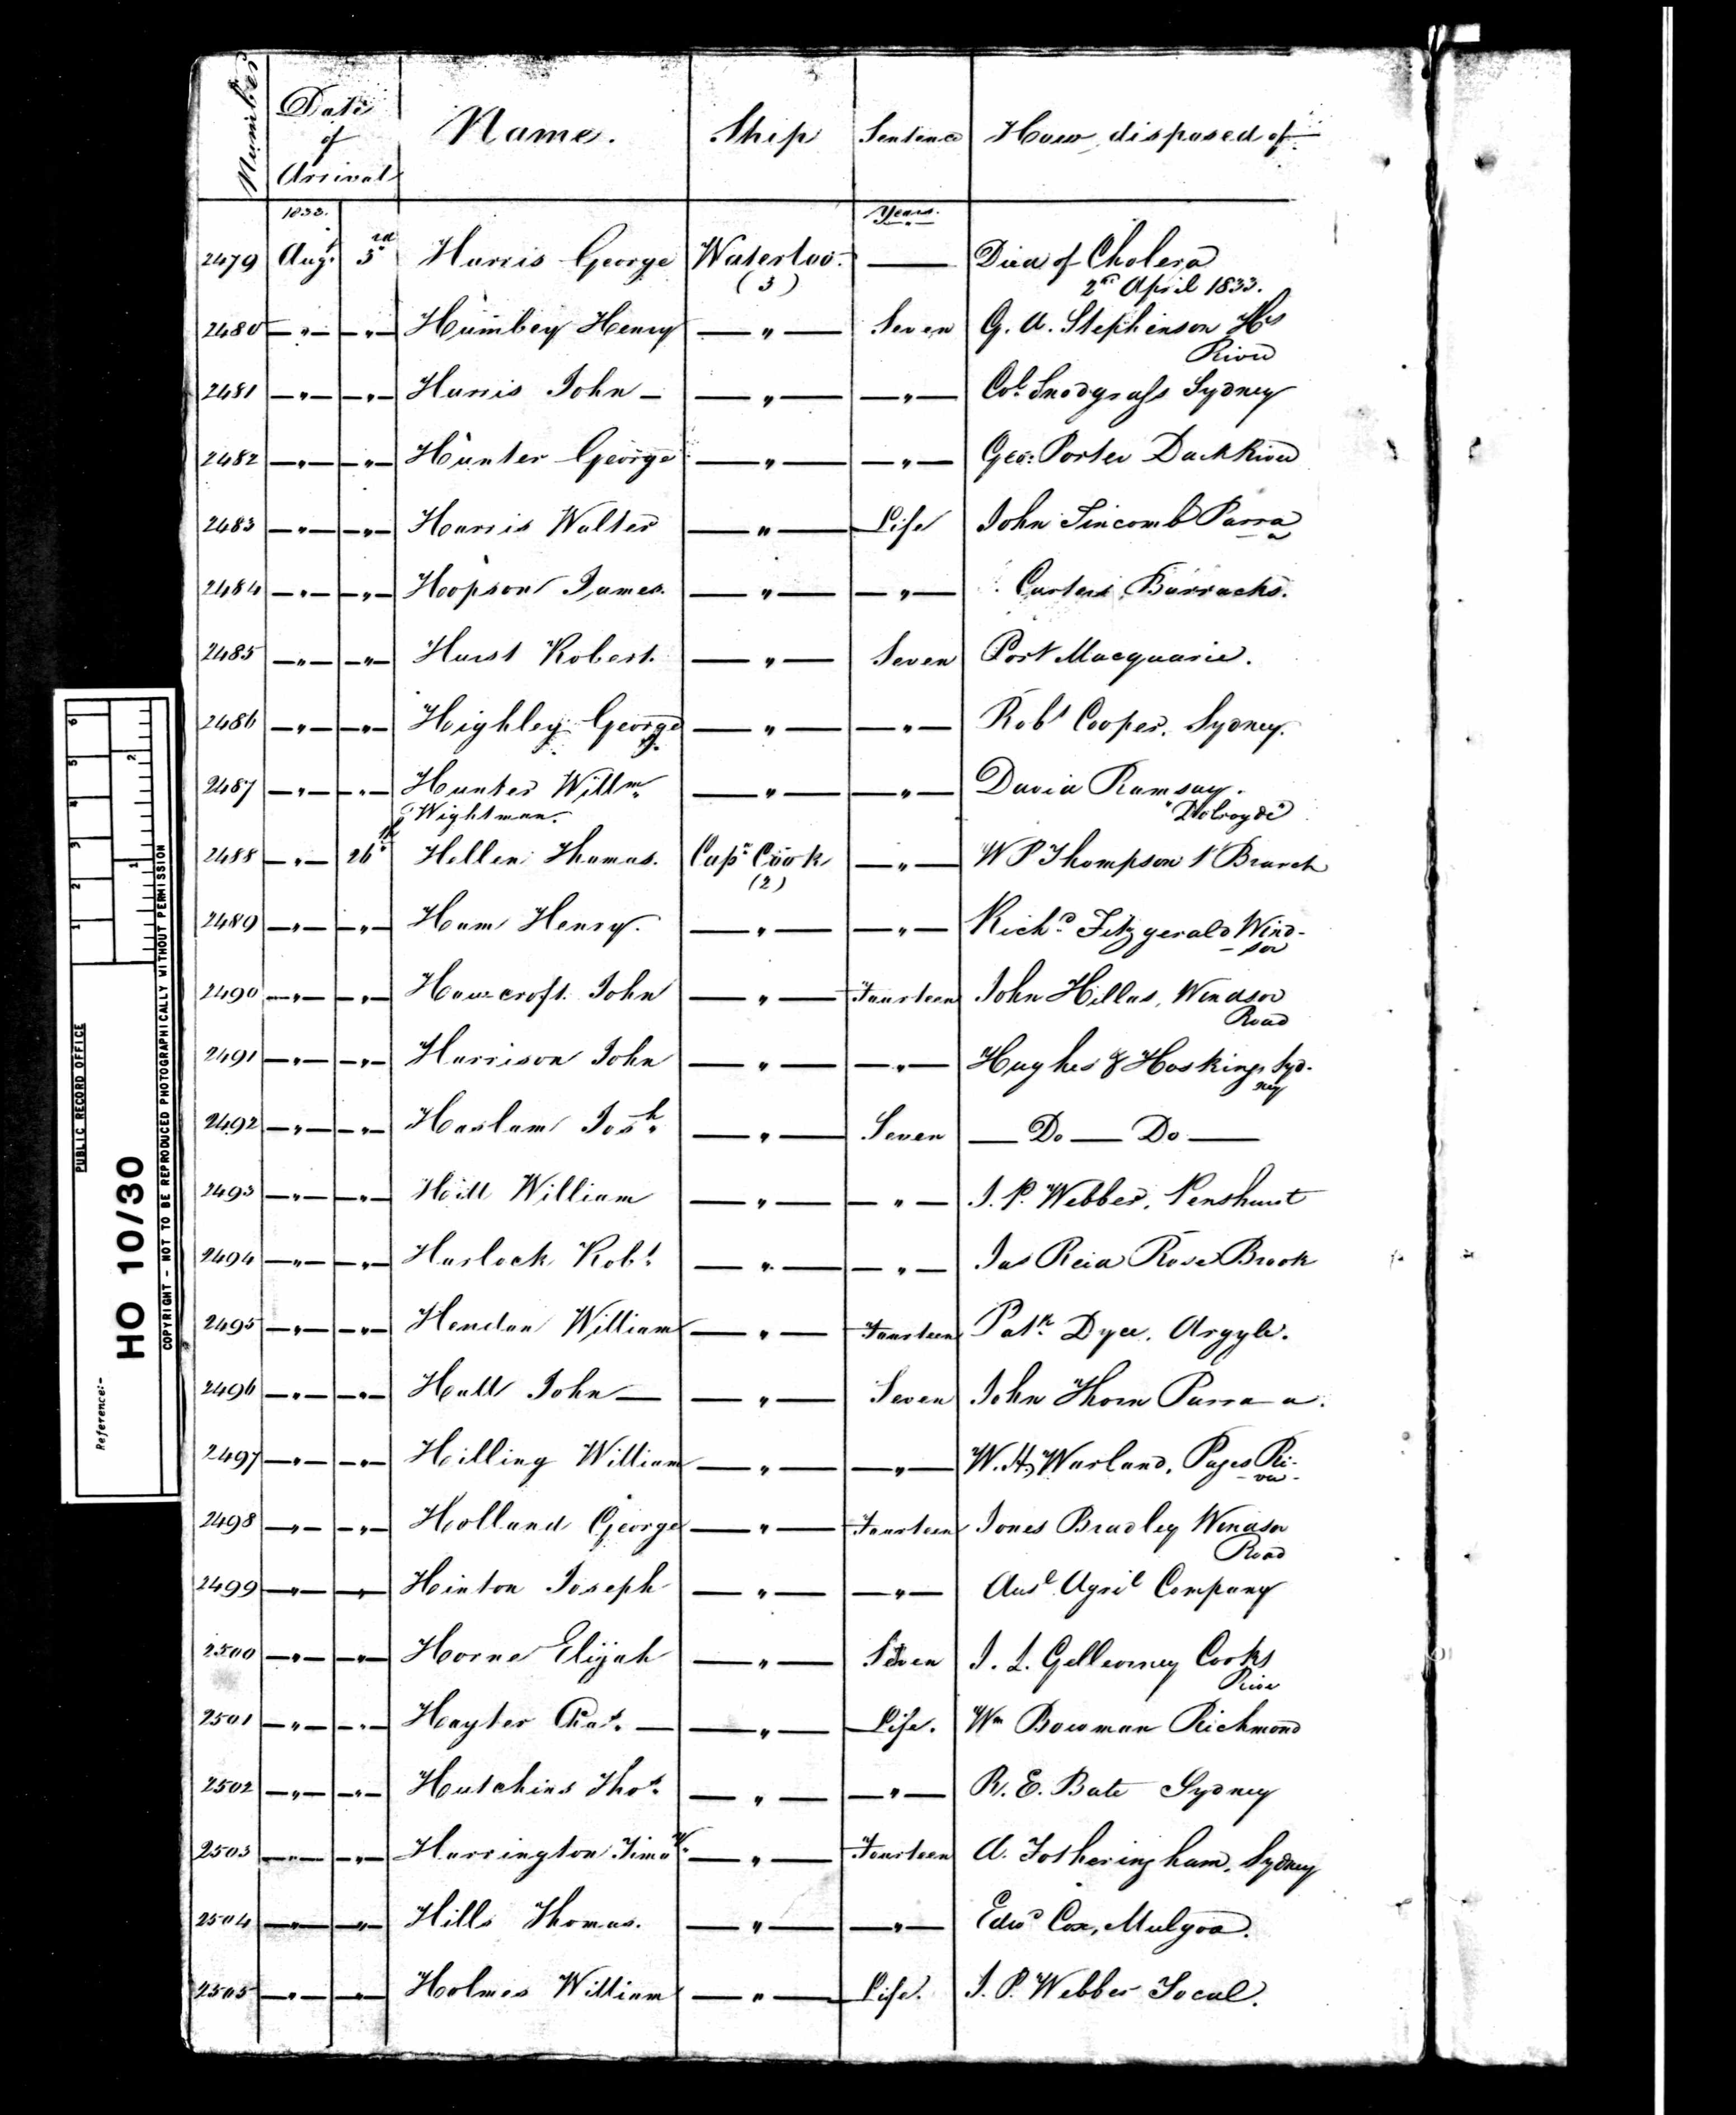 Number Date of Arrival Name. Ship Sentence How disposed of
1833. Years.
2479 Augt 3rd Harris George Waterloo (3) — Died of Cholera 2nd April 1833.
2480 —"— —"— Humbey Henry —"— Seven G. A. Stephenson Hs River
2481 —"— —"— Harris John — —"— —"— Col. Snodgrass Sydney
2482 —"— —"— Hunter George —"— —"— Geo: Porter Duck River
2483 —"— —"— Harris Walter —"— Life John Tincomb Parra_a
2484 —"— —"— Hopson James. —"— —"— Carters Barracks.
2485 —"— —"— Hurst Robert. —"— Seven Port Macquarie.
2486 —"— —"— Highley George —"— —"— Robt Cooper, Sydney.
2487 —"— —"— Hunter Willm or Wightman. —"— —"— David Ramsay. "Dobroyde"
2488 —"— 26th Hellen Thomas. Capn Cook (2) —"— W P Thompson 1 Branch
2489 —"— —"— Ham Henry. —"— —"— Richd Fitzgerald Wind-sor
2490 —"— —"— Hawcroft John —"— Fourteen John Hillas, Windsor Road
2491 —"— —"— Harrison John —"— —"— Hughes & Hoskings Syd-ney
2492 —"— —"— Haslam Josh. —"— Seven — Do — Do —
2493 —"— —"— Hill William —"— —"— J. P. Webber, Penshurst
2494 —"— —"— Harlock Robt. —"— —"— Jas Reid Rose Brook
2495 —"— —"— Hendon William —"— Fourteen Patk Dyce, Argyle.
2496 —"— —"— Hall John — —"— Seven John Thorn Parra_a.
2497 —"— —"— Hilling William —"— —"— W. H. Warland, Pages Ri-ver
2498 —"— —"— Holland George —"— Fourteen Jones Bradley Windsor Road
2499 —"— —"— Hinton Joseph —"— —"— Ausl Agril Company
2500 —"— —"— Horne Elijah —"— Seven J. L. Cooks River
2501 —"— —"— Hayter Chas. — —"— Life. Wm Bowman Richmond
2502 —"— —"— Hutchins Thos. —"— —"— R. E. Bate Sydney
2503 —"— —"— Harrington Timoy. —"— Fourteen A. Fotheringham, Sydney
2504 —"— —"— Hills Thomas. —"— —"— Edwd Cox, Mulgoa.
2505 —"— —"— Holmes William —"— Life. J. P. Webber Tocal.
PUBLIC RECORD OFFICE
Reference:-
HO 10/30
COPYRIGHT - NOT TO BE REPRODUCED PHOTOGRAPHICALLY WITHOUT PERMISSION
1 2 3 4 5 6
1 2